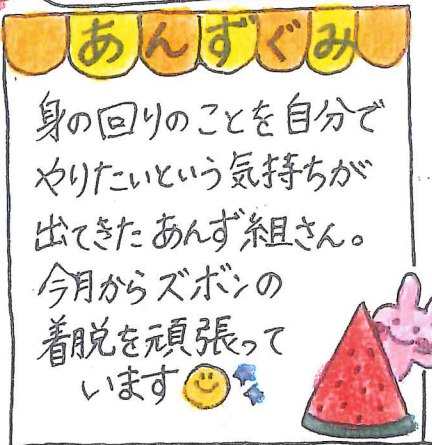 あんずぐみ
身の回りのことを自分で
やりたいという気持ちが
出てきたあんず組さん。
今月からズボンの
着脱を頑張って
います